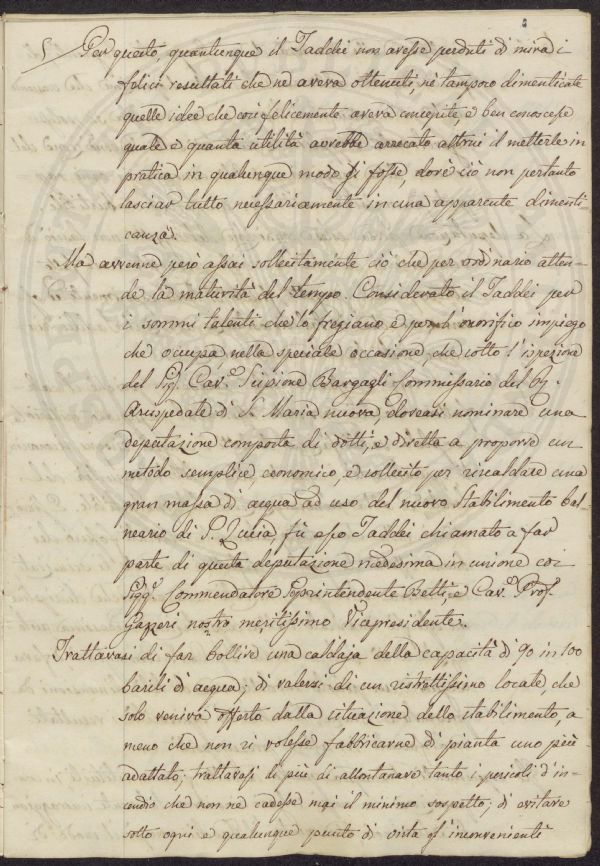 5 Per questo, quantunque il Taddei non avesse perduti di mira i
felici resultati che ne aveva ottenuti, nè tampoco dimenticate
quelle idee che così felicemente aveva concepite, e ben conoscesse
quale e quanta utilità avrebbe arrecato altrui il metterle in
pratica in qualunque modo si fosse, dovè ciò non pertanto
lasciar tutto necessariamente in una apparente dimenti
canza.
Ma avvenne però assai sollecitamente ciò che per ordinario atten-
de la maturità del tempo. Considerato il Taddei per
i sommi talenti che lo fregiano, e per l'onorifico impiego
che occupa, nella speciale occasione, che sotto l'ispezione
del Sig. Cav.e Scipione Bargagli Commissario del Rg.
Arcispedale di S. Maria nuova, doveasi nominare una
deputazione composta di dotti, e diretta a proporre un
metodo semplice economico, e sollecito per riscaldare una
gran massa di acqua ad uso del nuovo stabilimento bal
neario di S. Lucia, fù esso Taddei chiamato a far
parte di questa deputazione medesima in unione coi
Sigg.i Commendatore Soprintendente Betti, e Cav.e Prof.
Gazzeri nostro meritissimo Vicepresidente.
Trattavasi di far bollire una caldaja della capacità di 90 in 100
barili di acqua; di valersi di un ristrettissimo locale, che
solo veniva offerto dalla situazione dello stabilimento, a
meno che non si volesse fabbricarne di pianta uno più
adattato; trattavasi di più di allontanare tanto i pericoli d'in-
cendio che non ne cadesse mai il minimo sospetto; di evitare
sotto ogni e qualunque punto di vista gl'inconvenienti